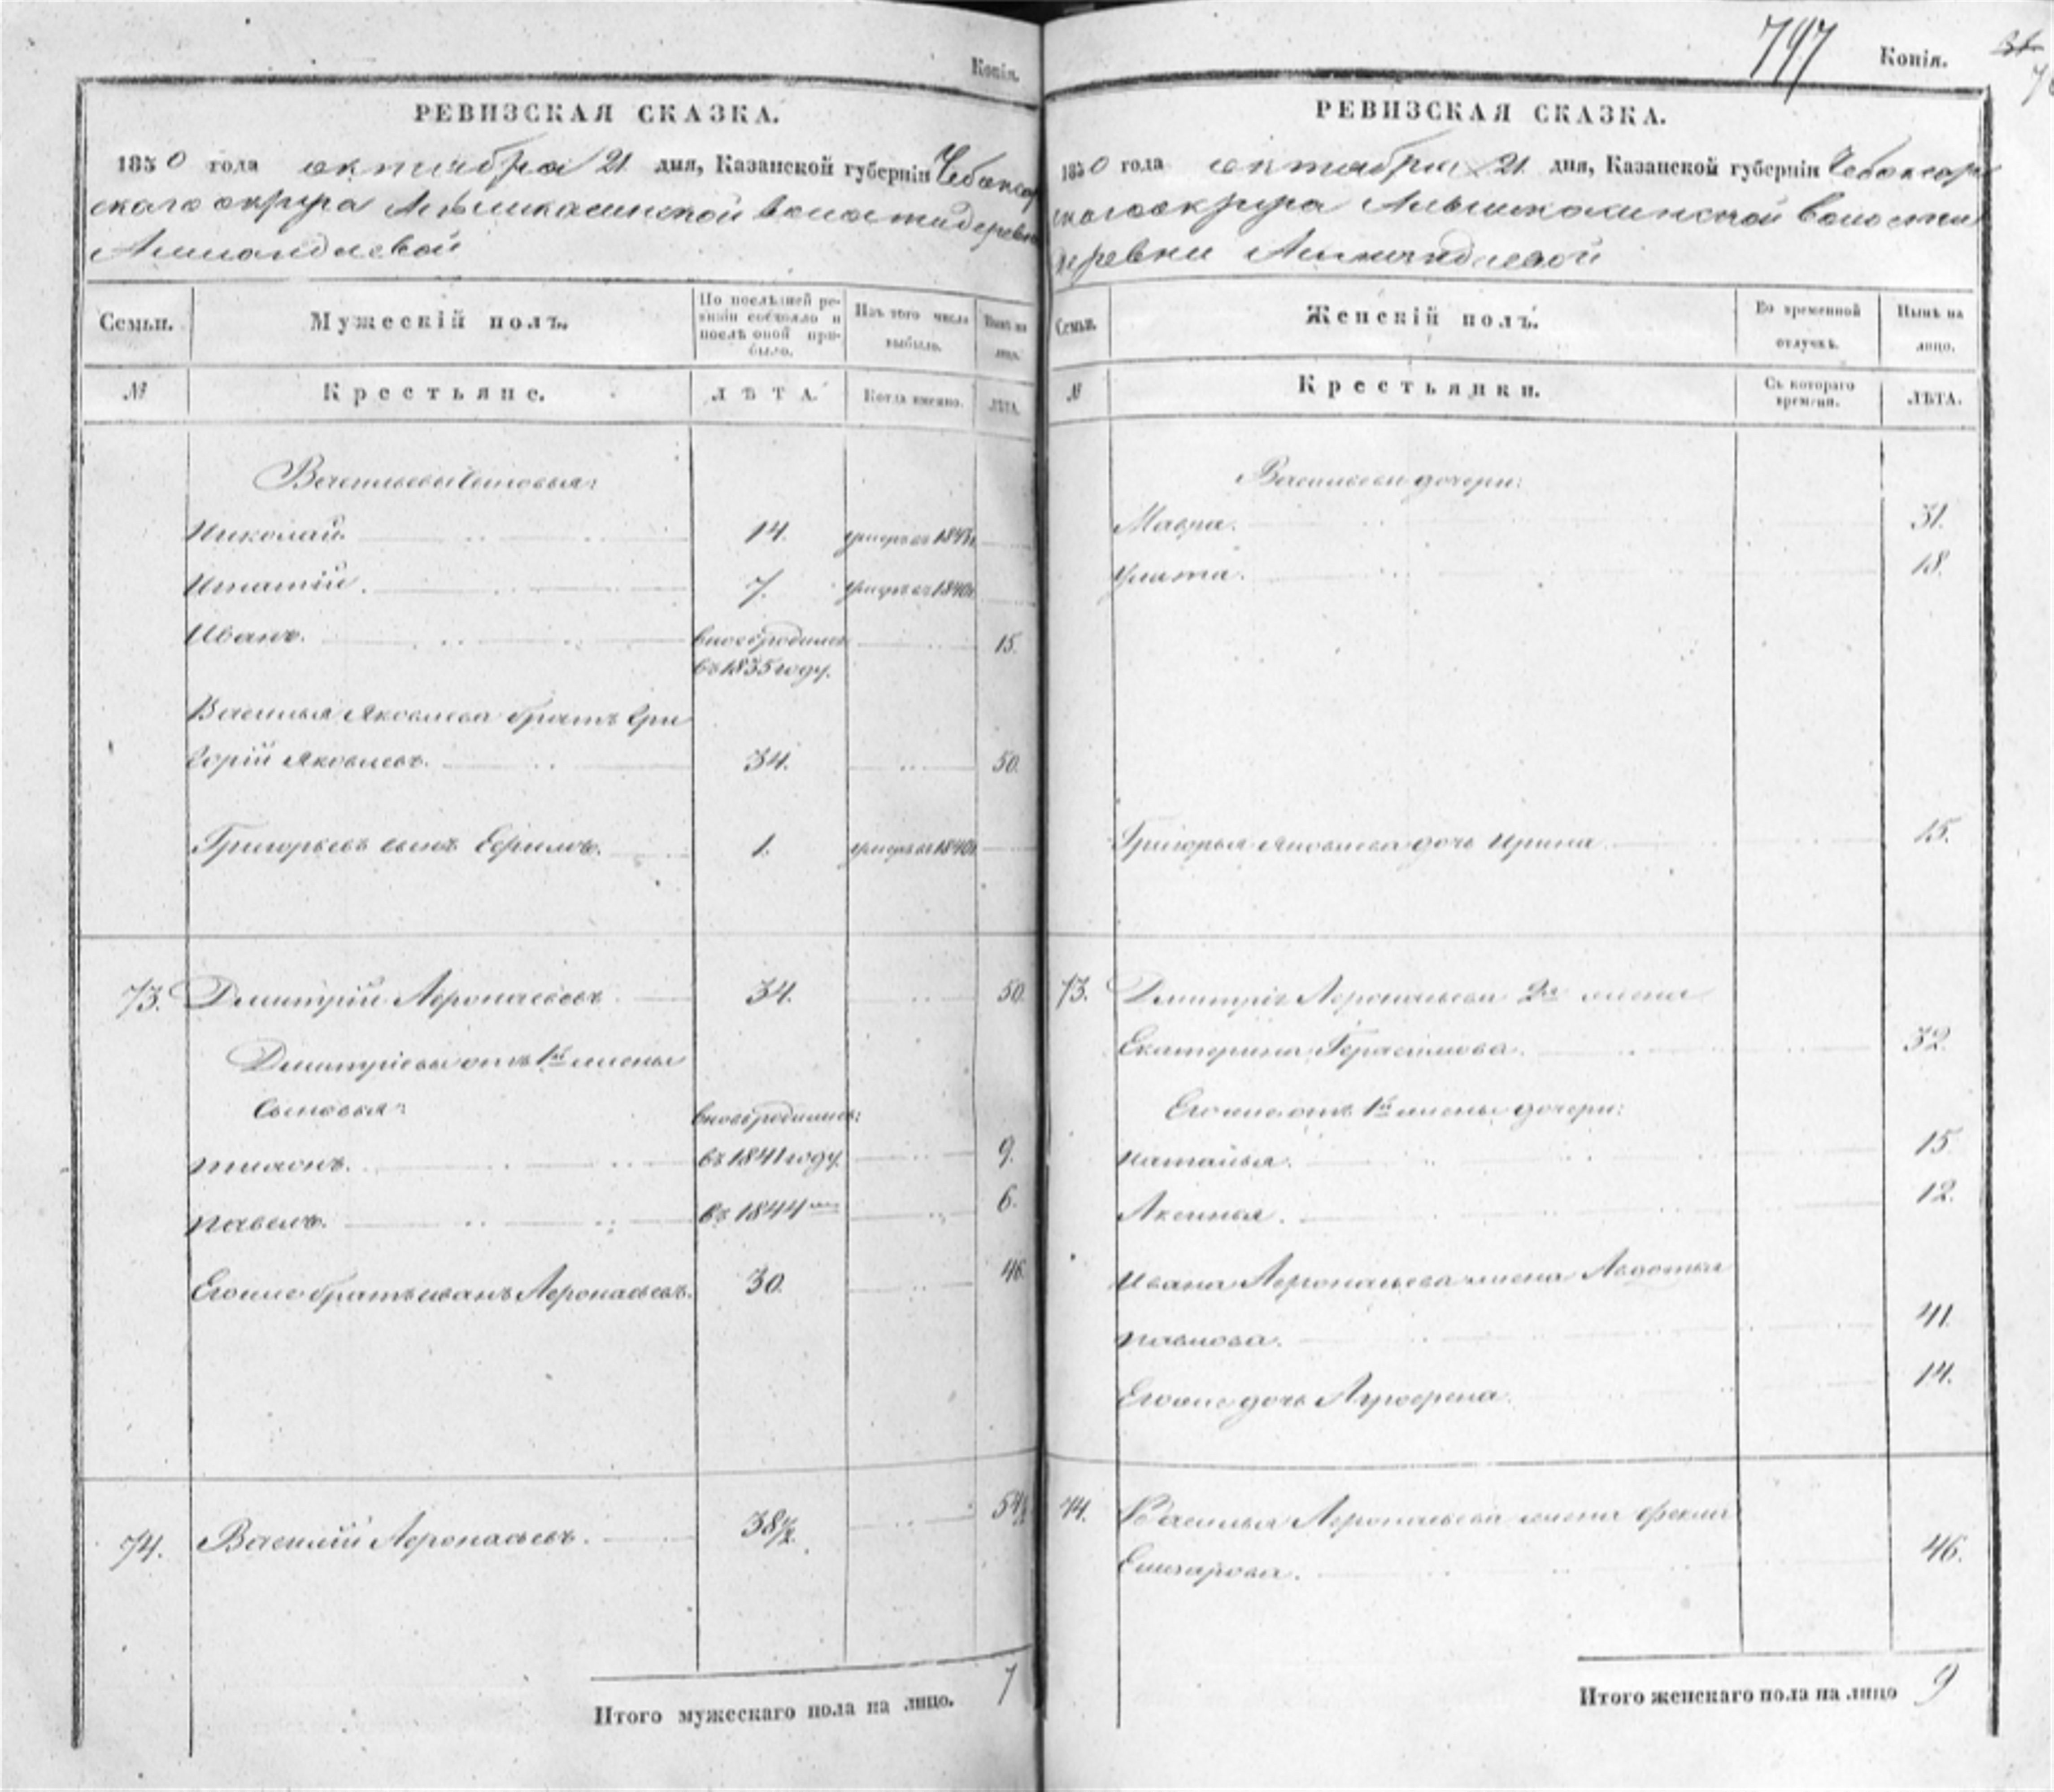 Копія.
РЕВИЗСКАЯ СКАЗКА.
1850 года октября 21 дня, Казанской губерніи Чебоксар
скаго округа Алымкасинской волости деревни
Семьи.
Мужескій полъ.
По послѣдней ре-
визіи состояло и
послѣ оной при-
было.
Изъ того числа
выбыло.
Нынѣ на
лицо.
№
Крестьяне.
ЛѢТА.
Когда именно.
ЛѢТА.
Васильевы сыновья:
Николай. 14. умеръ въ
Игнатій. 7. умеръ въ 1840
Иванъ. вновь родился 15.
въ 1835 году.
Василья Яковлева братъ Гри
горій Яковлевъ. 34. 50.
Григорьевъ сынъ Ефимъ. 1. умеръ въ 1840
73. Дмитрій Афонасьевъ 34. 50.
Дмитріевы отъ 1й жены
Сыновья: вновь родились:
въ 1841 году. 9.
Павелъ. въ 1844 6.
Егоже братъ Иванъ Афонасьевъ. 30. 46.
74. Василій Афонасьевъ. 38½. 54½
Итого мужескаго пола на лицо. 7
797 Копія.
РЕВИЗСКАЯ СКАЗКА.
1850 года октября 21 дня, Казанской губерніи Чебоксар
скаго округа Алымкасинской волости
деревни
Семьи.
Женскій полъ.
Во временной
отлучкѣ.
Нынѣ на
лицо.
№
Крестьянки.
Съ котораго
времени.
ЛѢТА.
Васильевы дочери:
Мавра. 31.
Улита. 18.
Григорья Яковлева дочь Ирина 15.
73. Дмитрія Афонасьева 2я жена
Екатерина Герасимова. 32.
Егоже отъ 1й жены дочери:
Наталья. 15
Аксинья. 12.
Ивана Афонасьева жена Авдотья
Павлова. 41.
Егоже дочь Афросина. 14.
74. Василья Афонасьева жена Фекла
Елизарова. 46.
Итого женскаго пола на лицо 9